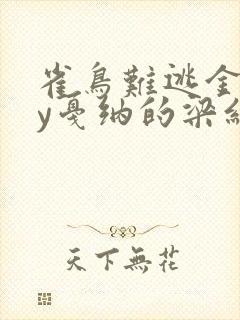 雀鳥難逃金
y戛纳的梁纟
天下無花